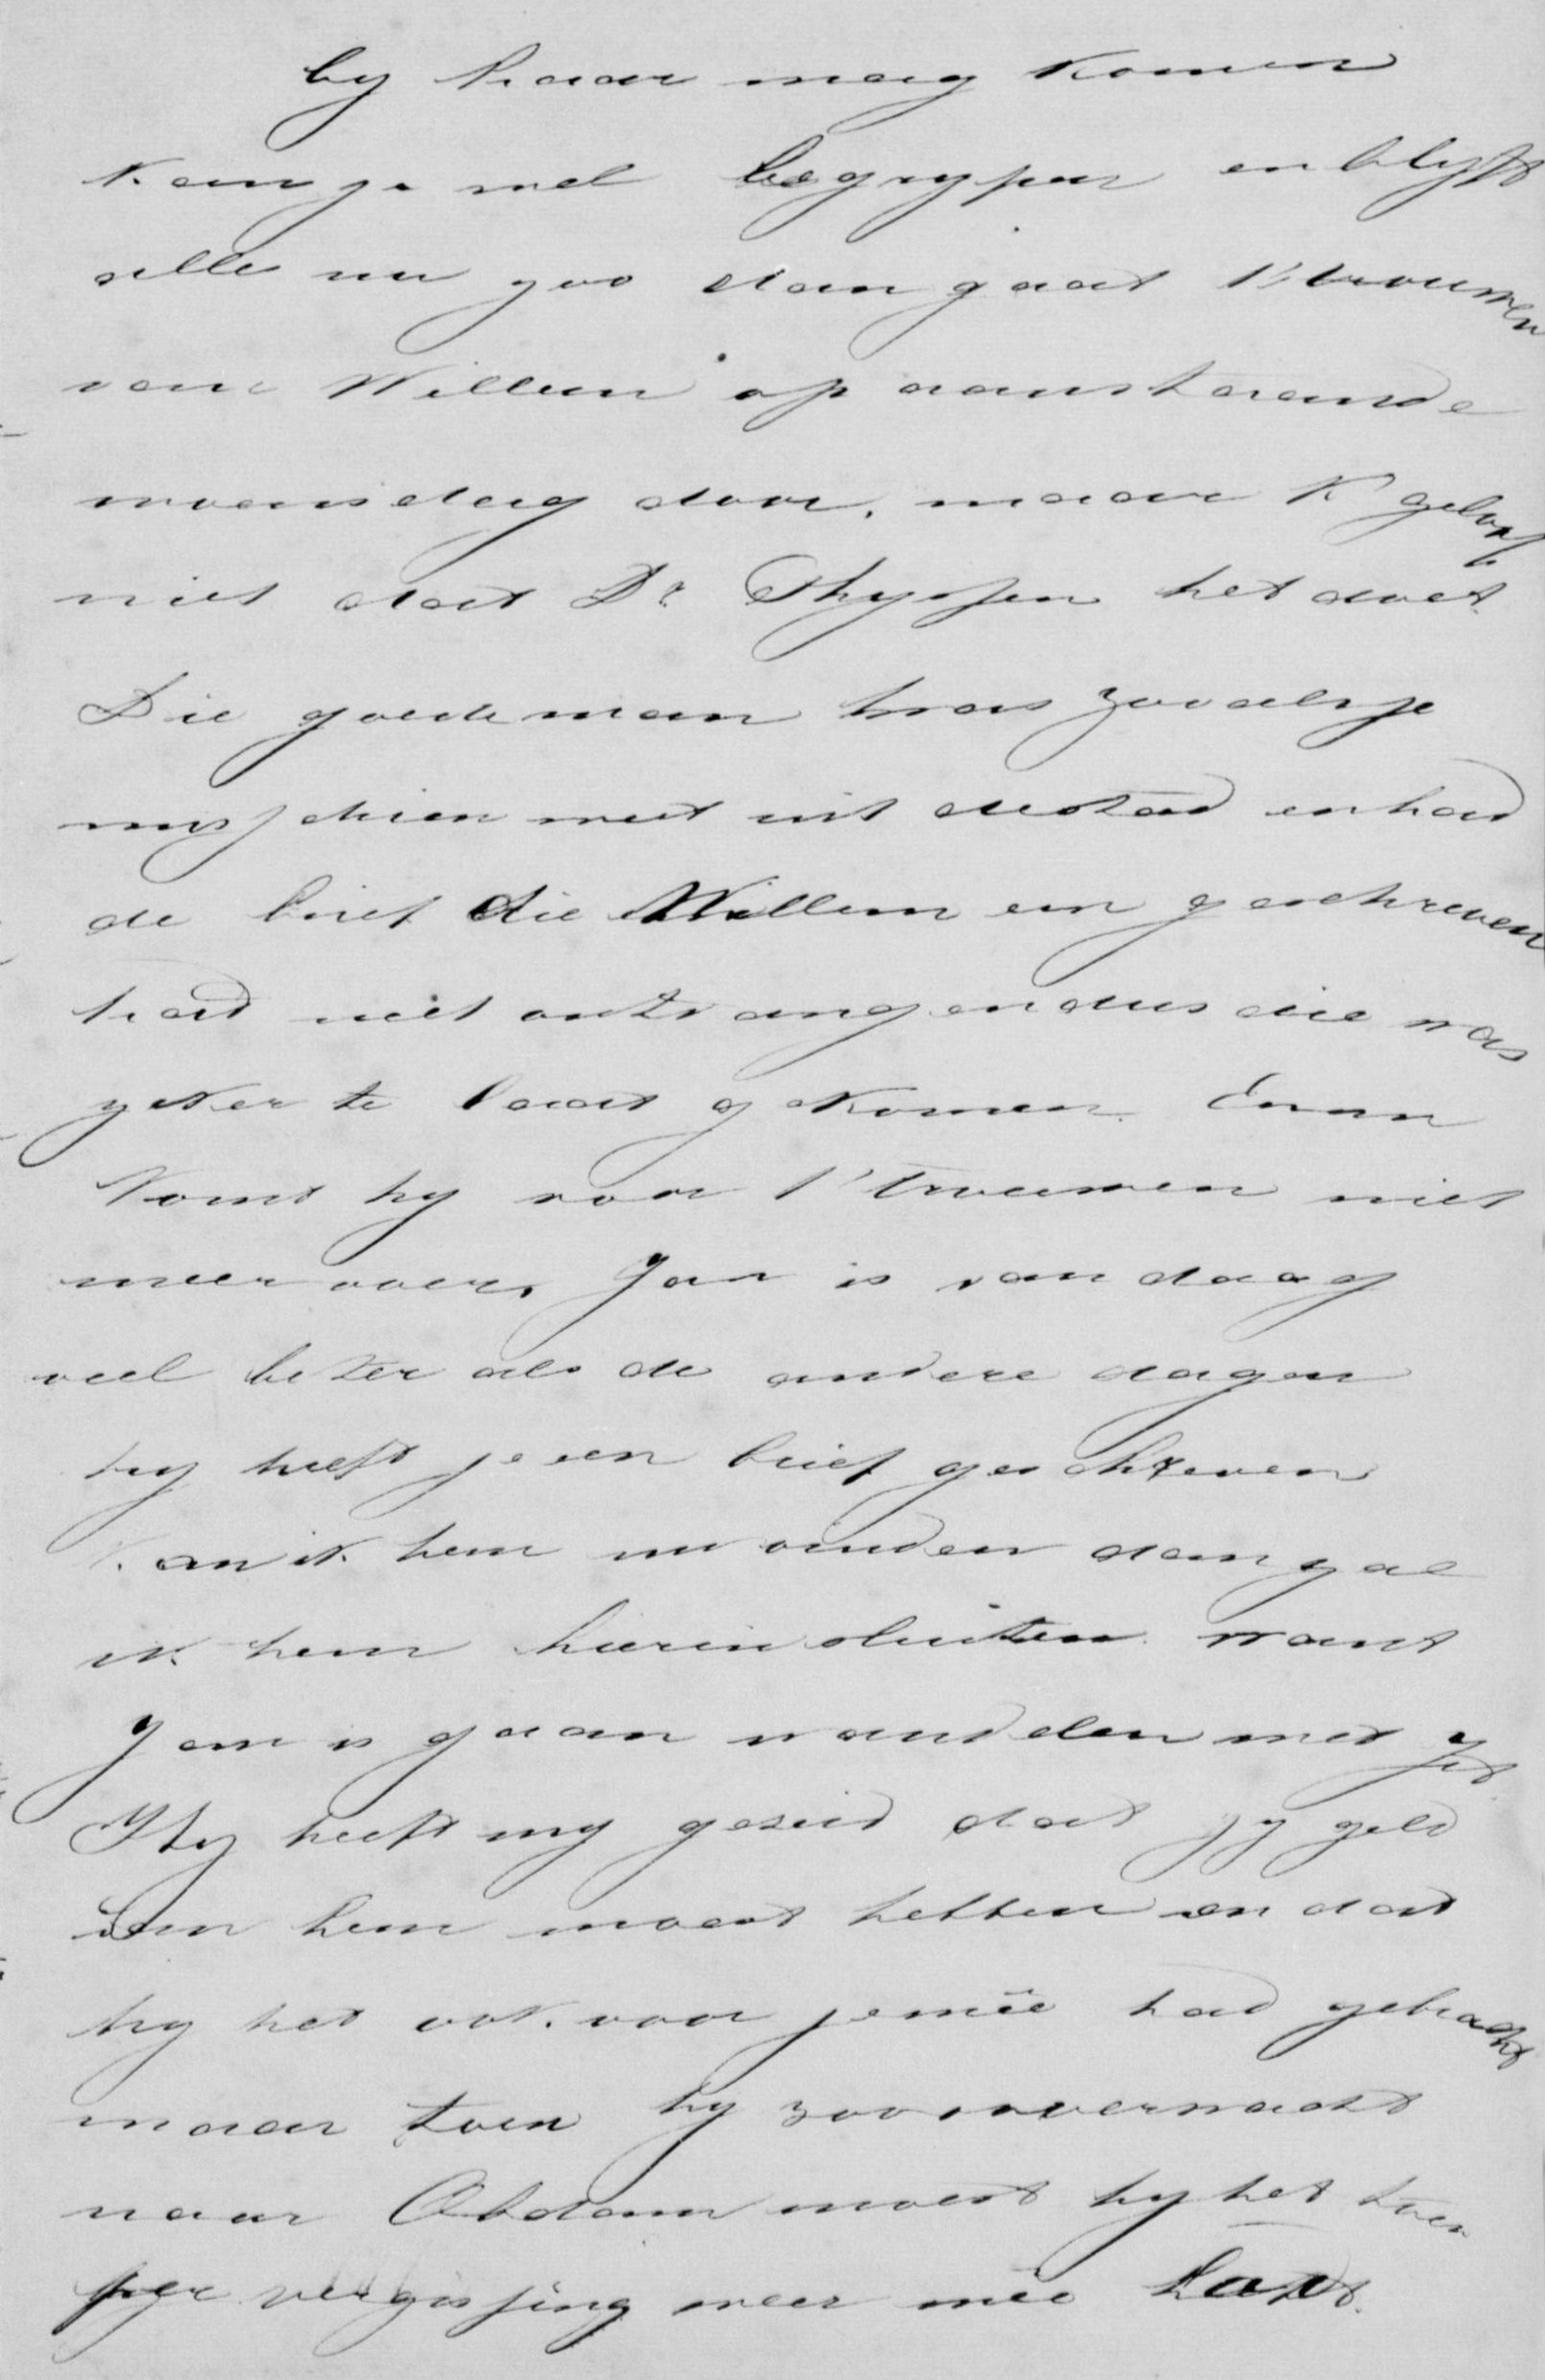 by haar mag komen
kan je wel begrypen en blyft
alles nu zoo dan gaat 't trouwen
van Willem op aanstaande
woensdag door, maar 'k geloof
niet dat Dr. Thyssen het doet.
Die goede man was zooals je
misschien weet uit de stad en had
de brief die Willem em geschreven
had niet ontvangen dus die was
zeker te laat gekomen. En nu
komt hy voor 't trouwen niet
meer over. Jan is van daag
veel beter als de andere dagen
hy heeft je een brief geschreven
kan ik hem nu vinden dan zal
ik hem hierin sluiten want
Jan is gaan wandelen met
Hy heeft my gezeid dat jy geld
van hem moest hebben en dat
hy het ook voor je meê had gebracht
maar toen hy zoo onverwacht
naar Obdam moest hy het toen
per vergissing weer meê